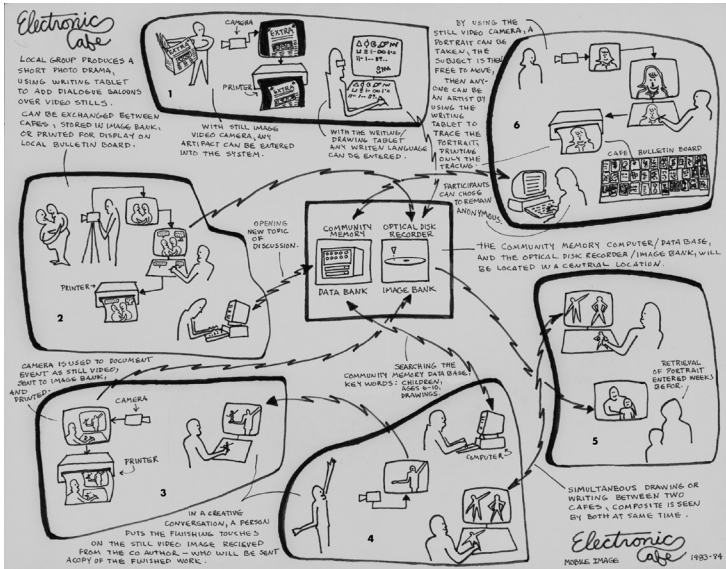 Electronic
Cafe
LOCAL GROUP PRODUCES A
SHORT PHOTO DRAMA,
USING WRITING TABLET
TO ADD DIALOGUE BALOONS
OVER VIDEO STILLS.
CAN BE EXCHANGED BETWEEN
CAFES, STORED IN IMAGE BANK,
OR PRINTED FOR DISPLAY ON
LOCAL BULLETIN BOARD.
CAMERA
EXTRA
EXTRA
PRINTER
EXTRA
1
WITH STILL IMAGE
VIDEO CAMERA, ANY
ARTIFACT CAN BE ENTERED
INTO THE SYSTEM.
WITH THE WRITING/
DRAWING TABLET
ANY WRITEN LANGUAGE
CAN BE ENTERED.
BY USING THE
STILL VIDEO CAMERA, A
PORTRAIT CAN BE
TAKEN, THE
SUBJECT IS THEN
FREE TO MOVE,
THEN ANY-
ONE CAN BE
AN ARTIST BY
USING THE
WRITING
TABLET TO
TRACE THE
PORTRAIT,
PRINTING
ONLY THE
TRACING.
6
CAFE BULLETIN BOARD
PARTICIPANTS
CAN CHOSE
TO REMAIN
ANONYMOUS.
PRINTER
2
OPENING
NEW TOPIC
OF
DISCUSSION.
COMMUNITY
MEMORY
DATA BANK
OPTICAL DISK
RECORDER
IMAGE BANK
THE COMMUNITY MEMORY COMPUTER/DATA BASE,
AND THE OPTICAL DISK RECORDER/IMAGE BANK, WILL
BE LOCATED IN A CENTRIAL LOCATION.
CAMERA IS USED TO DOCUMENT
EVENT AS STILL VIDEO,
SENT TO IMAGE BANK,
AND
PRINTED.
CAMERA
PRINTER
3
SEARCHING THE
COMMUNITY MEMORY DATA BASE,
KEY WORDS: CHILDREN,
AGES 6-10,
DRAWINGS.
COMPUTER
4
RETRIEVAL
OF PORTRAIT
ENTERED WEEKS
BEFOR.
5
IN A CREATIVE
CONVERSATION, A PERSON
PUTS THE FINISHING TOUCHES
ON THE STILL VIDEO IMAGE RECIEVED
FROM THE CO AUTHOR – WHO WILL BE SENT
A COPY OF THE FINISHED WORK.
SIMULTANEOUS DRAWING OR
WRITING BETWEEN TWO
CAFES, COMPOSITE IS SEEN
BY BOTH AT SAME TIME.
Electronic
Cafe
MOBILE IMAGE
1983-84